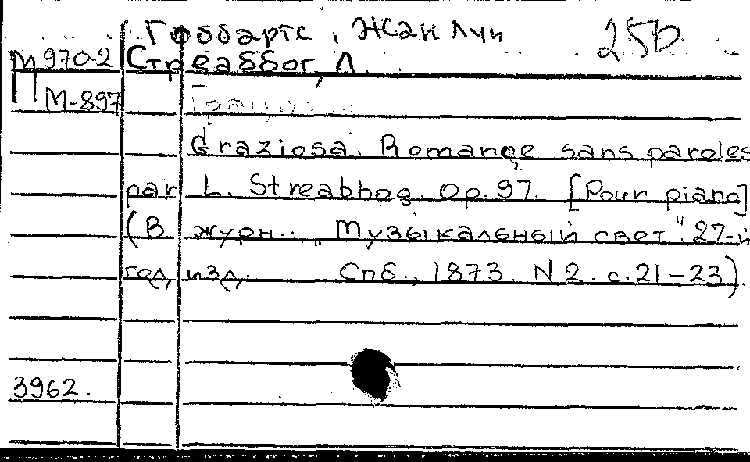 Гоббартс, Жан Луи 25р
М 970-2 Стреаббог, Л.
П М-897
Graziosa. Romance sans paroles
par L. Streabbog. Op. 97. [Pour piano]
(В журн.. „Музыкальный свет". 27-й
год изд. Спб., 1873. N 2. с. 21-23).
3962.